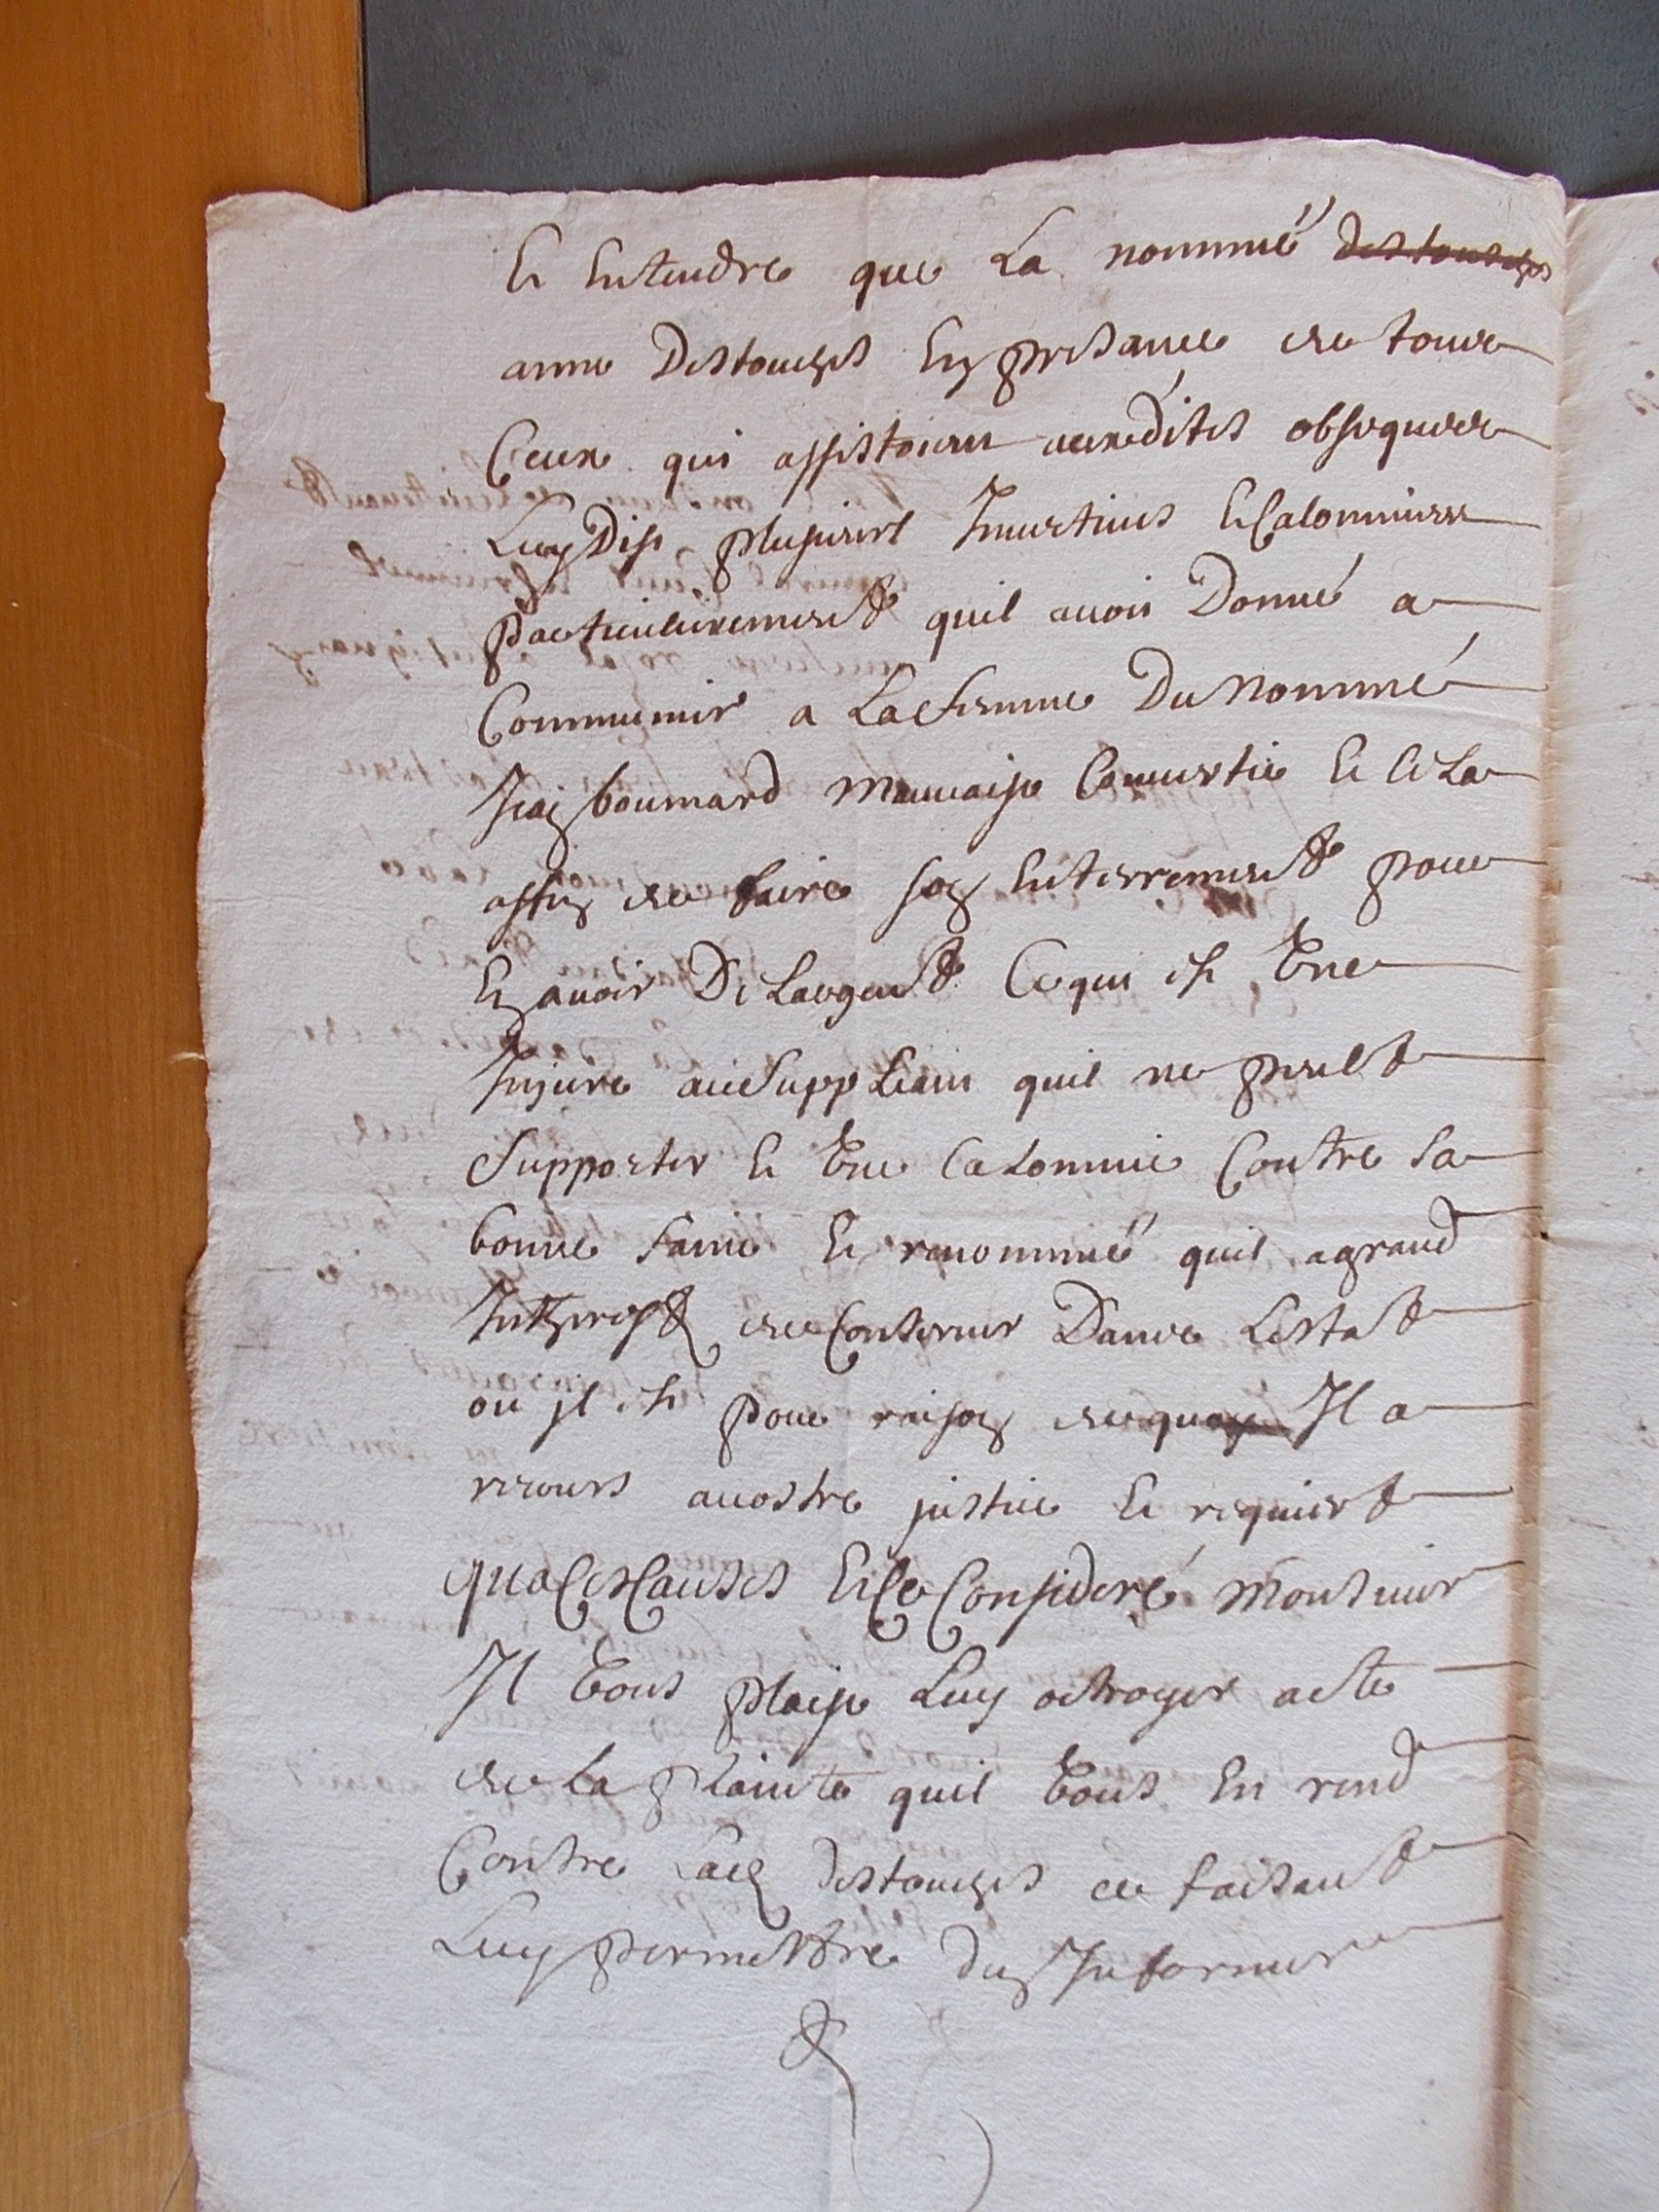 Et Entendre que La nommé destouches
anne Destouches En presance de tous
Ceux qui assistoient auxdites obseques
Luy Dist plusieurs Inuectiues Et Calomnies
particulieremendt quil auoit Donné a
Communier a La femme Du Nommé
Jean boumard mauuaise Conuertie Et Cela
affin de faire son Enterremendt pour
En auoir De Largendt Ce qui est Vne
Injure au Suppliant quil ne peult
Supporter Et Vne Calomnie Contre sa
bonne fame Et renommé quil a grand
Intherest de Conseruer Dans Lestat
ou jl est pour raison de quoy Il a
recours a vostre justice Et requiert
qua Ces Causes Et Ce Consideré Monsieur
Il Vous plaise Luy octroyer acte
de La plainte quil Vous En rend
Contre Lad destouches ce faisant
Luy permettre den Informer